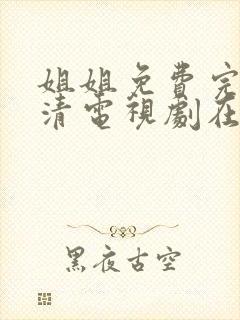 姐姐免費完
清電視劇在
黑夜古空